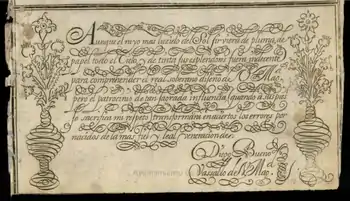 Aunque el rayo mas lucido del Sol, sirviera de pluma, de
papel todo el Cielo, y de tinta sus esplendores fuera insuficiente
para comprehender el real soberano diseño de V. Mag.
pero el patrocinio de tan sagrada influencia
sacrifica mi respeto transformando en aciertos los errores por
nacidos de la mas fiel y leal veneracion de
Diego Bueno
el
Vasallo de V. Mag.